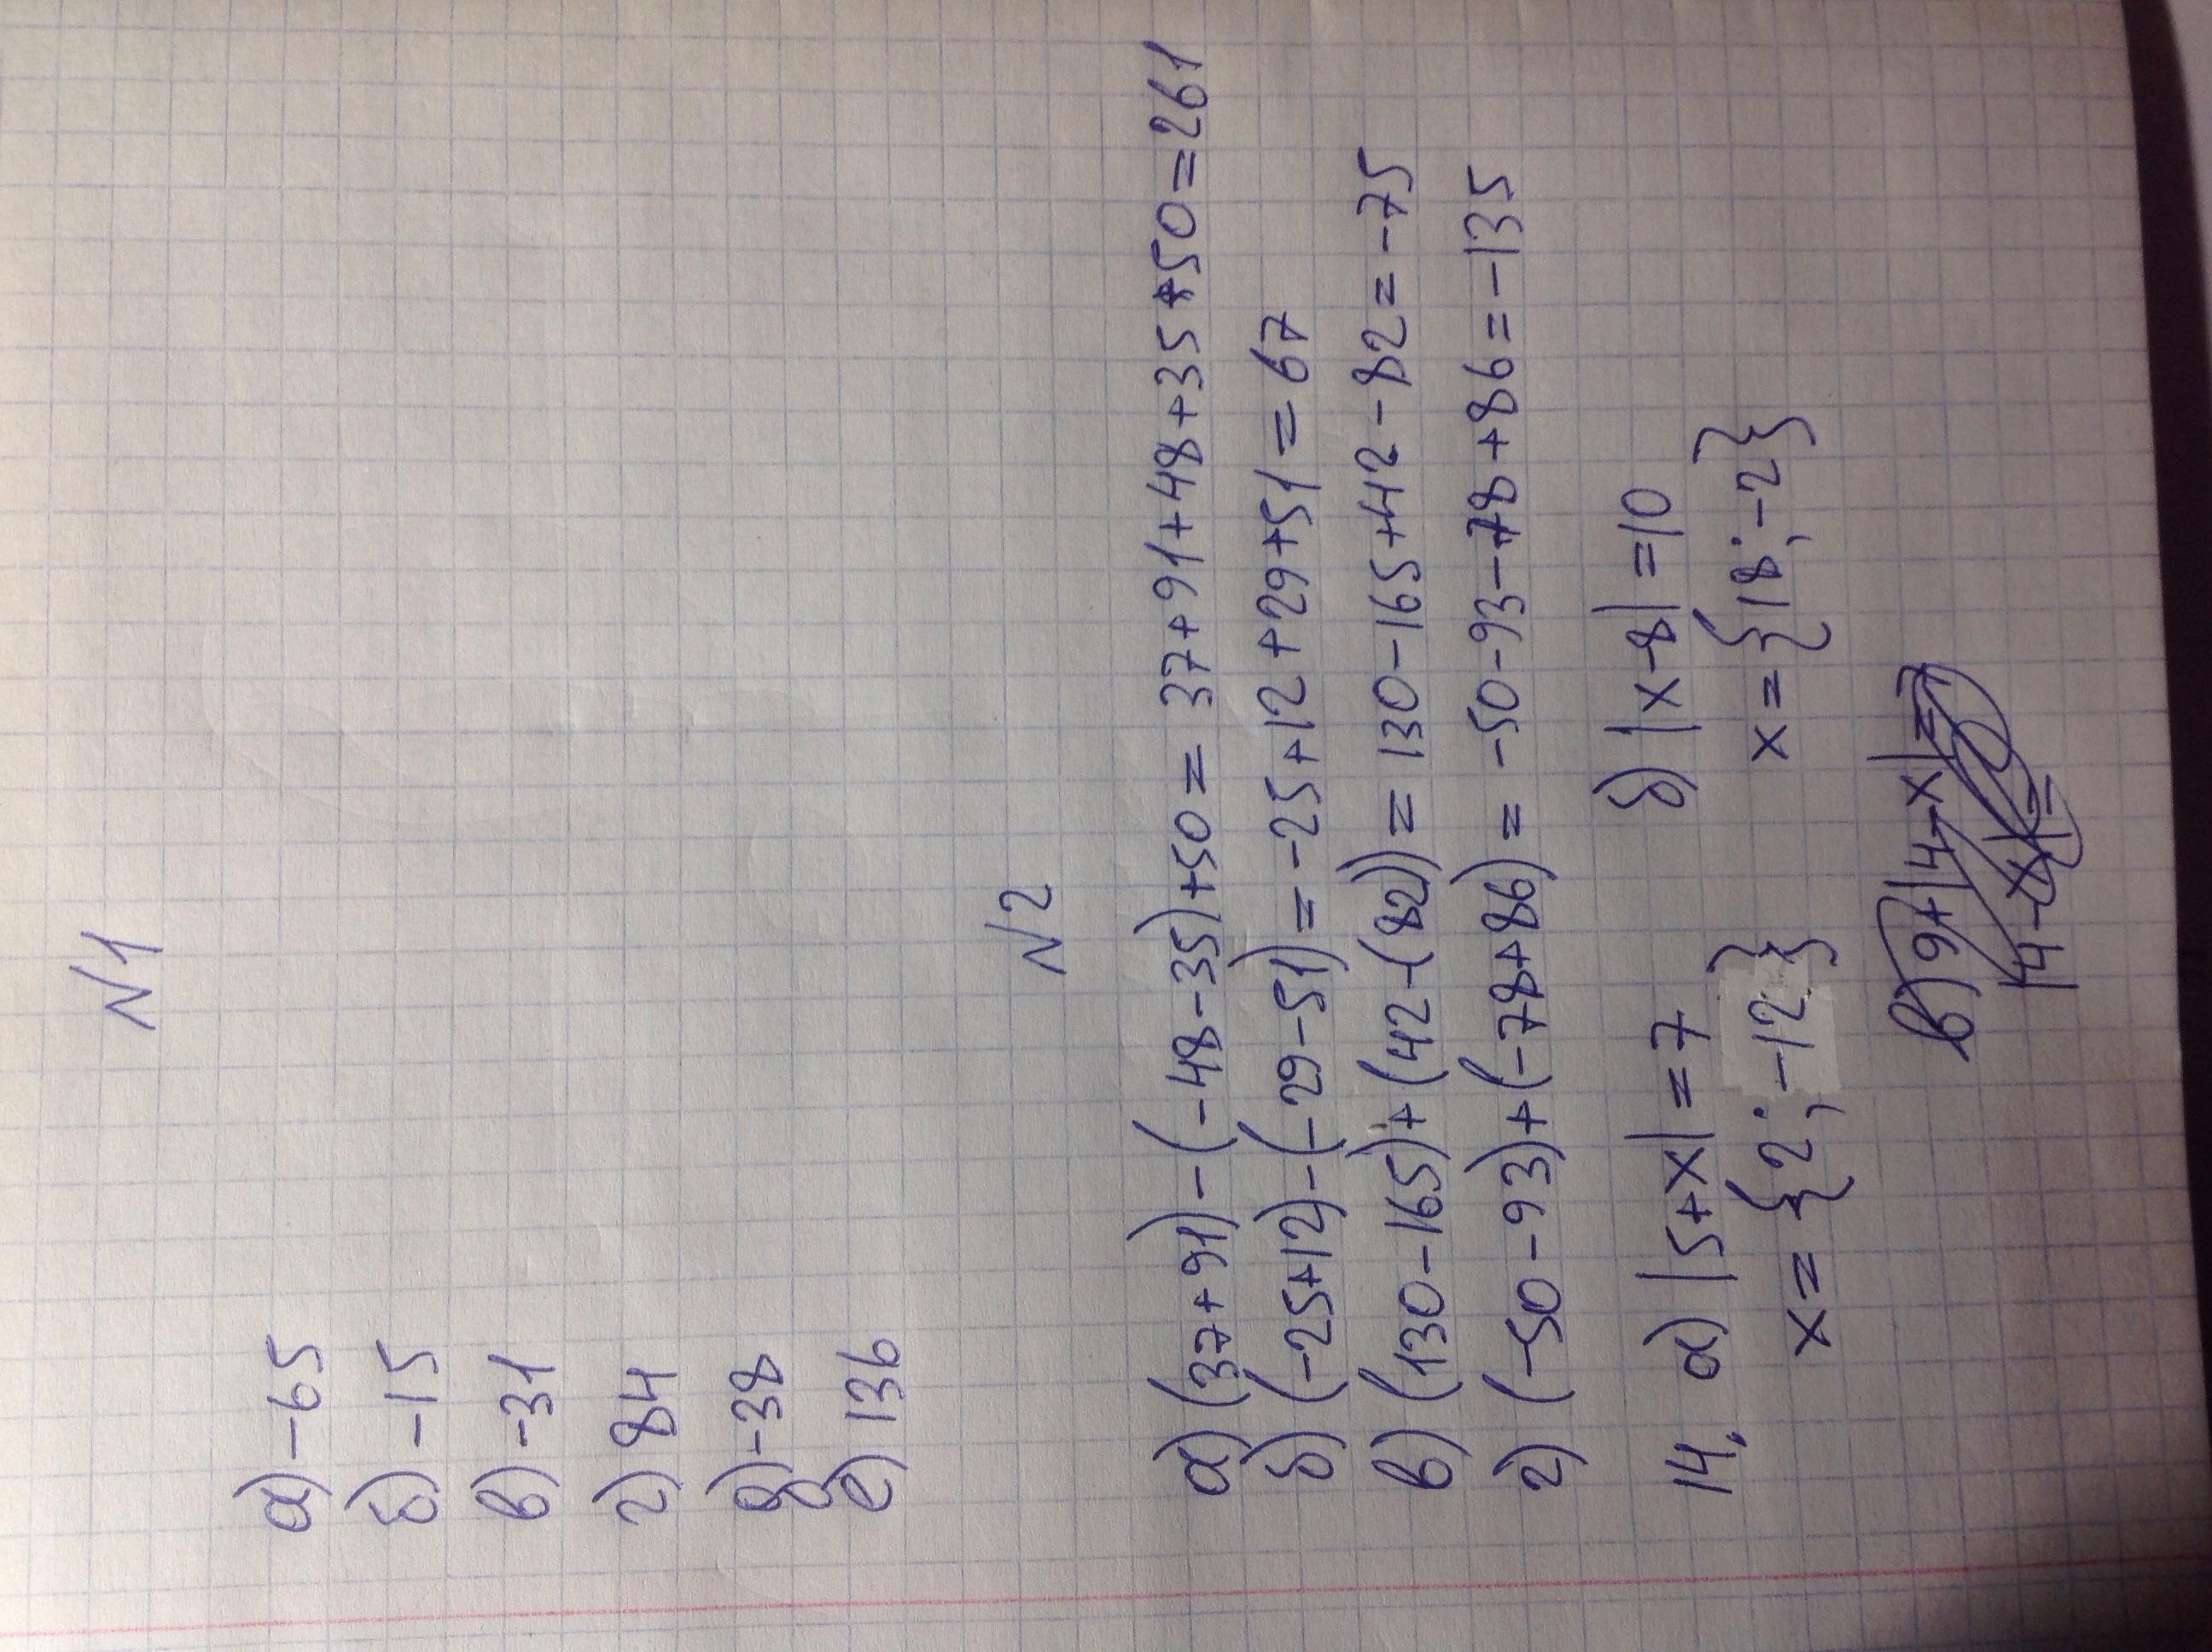 N1
а) -65
б) -15
в) -31
г) 84
д) -38
е) 136
N2
а) (37+91)-(-48-35)+50=37+91+48+35+50=261
б) (-25+12)-(-29-51)=-25+12+29+51=67
в) (130-165)+(42-(82))=130-165+42-82=-75
г) (-50-93)+(-78+86)=-50-93-78+86=-135
14. а) |5+x|=7 б) |x-8|=10
x={2;-12} x={18;-2}
в) 9+|4-x|=
|4-x|=